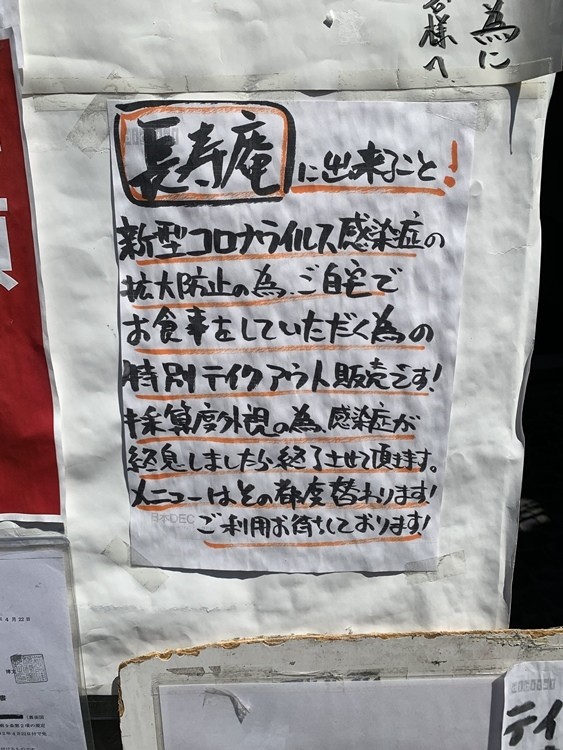 為に
客様へ
長寿庵に出来ること!
新型コロナウイルス感染症の
拡大防止の為、ご自宅で
お食事をしていただく為の
特別テイクアウト販売です!
採算度外視の為、感染症が
終息しましたら終了させて頂きます。
メニューはその都度替わります!
ご利用お待ちしております!
4月22日
テイ